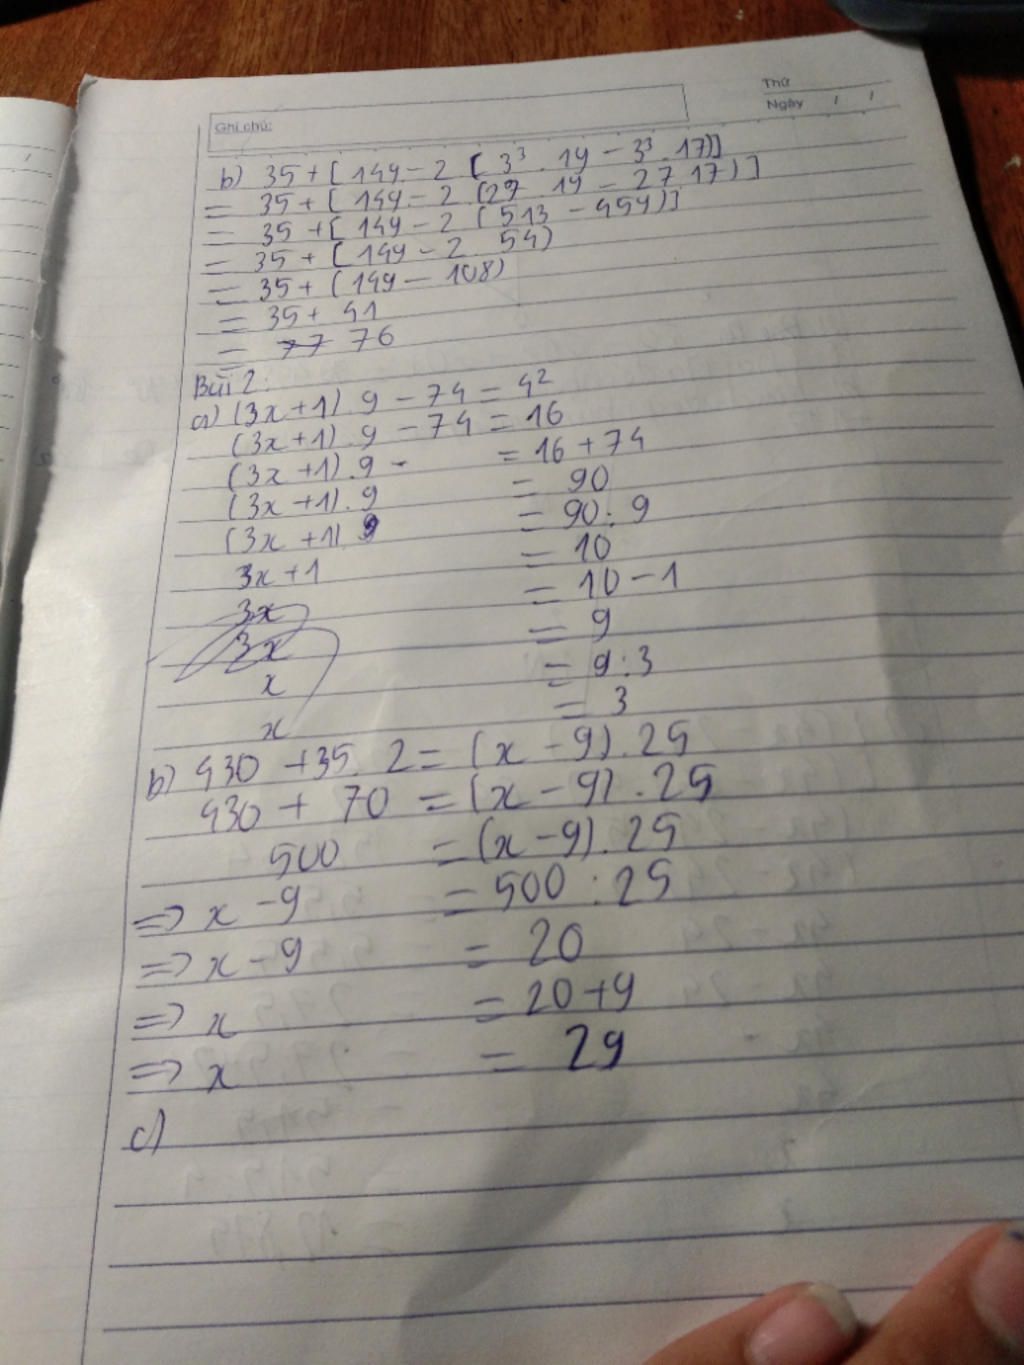 Ghi chú:
Thứ
Ngày / /
b) 35 + [ 149 - 2 ( 3³ . 19 - 3³ . 17)]
= 35 + [ 149 - 2 (27 19 - 27 17) ]
= 35 + [ 149 - 2 ( 513 - 459)]
= 35 + [ 149 - 2 54)
= 35 + ( 149 - 108)
= 35 + 41
= 77 76
Bài 2:
a) (3x+1) 9 - 74 = 4²
(3x+1) . 9 - 74 = 16
(3x+1) . 9 - = 16 + 74
(3x+1) . 9 = 90
(3x+1) 9 = 90 : 9
3x+1 = 10
3x = 10 - 1
3x = 9
x = 9 : 3
x = 3
b) 430 + 35. 2 = (x - 9) . 25
430 + 70 = (x - 9) . 25
500 = (x - 9) . 25
=> x - 9 = 500 : 25
=> x - 9 = 20
=> x = 20 + 9
=> x = 29
c)